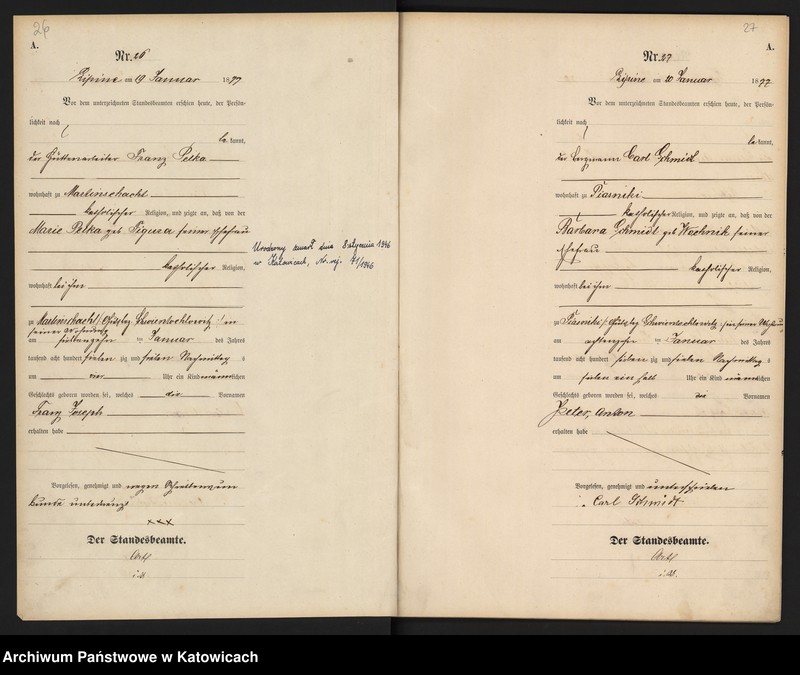 26
A.
Nr. 26
Lipine am 19 Januar 1877
Vor dem unterzeichneten Standesbeamten erschien heute, der Persön-
lichkeit nach
be kannt,
der Hüttenarbeiter Franz Pelka
wohnhaft zu Martinschacht
katholischer Religion, und zeigte an, daß von der
Marie Pelka geb Figura seiner Ehefrau
katholischer Religion,
wohnhaft bei ihm
zu Martinschacht Gutsbez Schwientochlowitz in
seiner Wohnung
am siebzehn ten Januar des Jahres
tausend acht hundert sieben zig und sieben Nachmittag s
um vier Uhr ein Kind männlichen
Geschlechts geboren worden sei, welches die Vornamen
Franz Joseph
erhalten habe
Vorgelesen, genehmigt und wegen Schreibensun
kunde unterkreuzt
xxx
Der Standesbeamte.
i.V.
Urodzony zmarł dnia 8 stycznia 1946
w Katowicach, Nr. rej. 71/1946
27
A.
Nr. 27
Lipine am 20 Januar 1877
Vor dem unterzeichneten Standesbeamten erschien heute, der Persön-
lichkeit nach
be kannt,
der Bergmann Carl Schmidt
wohnhaft zu Piasniki
katholischer Religion, und zeigte an, daß von der
Barbara Schmidt geb Wechnik seiner
Ehefrau
katholischer Religion,
wohnhaft bei ihm
zu Piasniki Gutsbez Schwientochlowitz in seiner Wohnung
am achtzehn ten Januar des Jahres
tausend acht hundert sieben zig und sieben Nachmittag s
um sieben ein halb Uhr ein Kind männlichen
Geschlechts geboren worden sei, welches die Vornamen
Peter, Anton
erhalten habe
Vorgelesen, genehmigt und unterschrieben
Carl Schmidt
Der Standesbeamte.
i.V.
Archiwum Państwowe w Katowicach